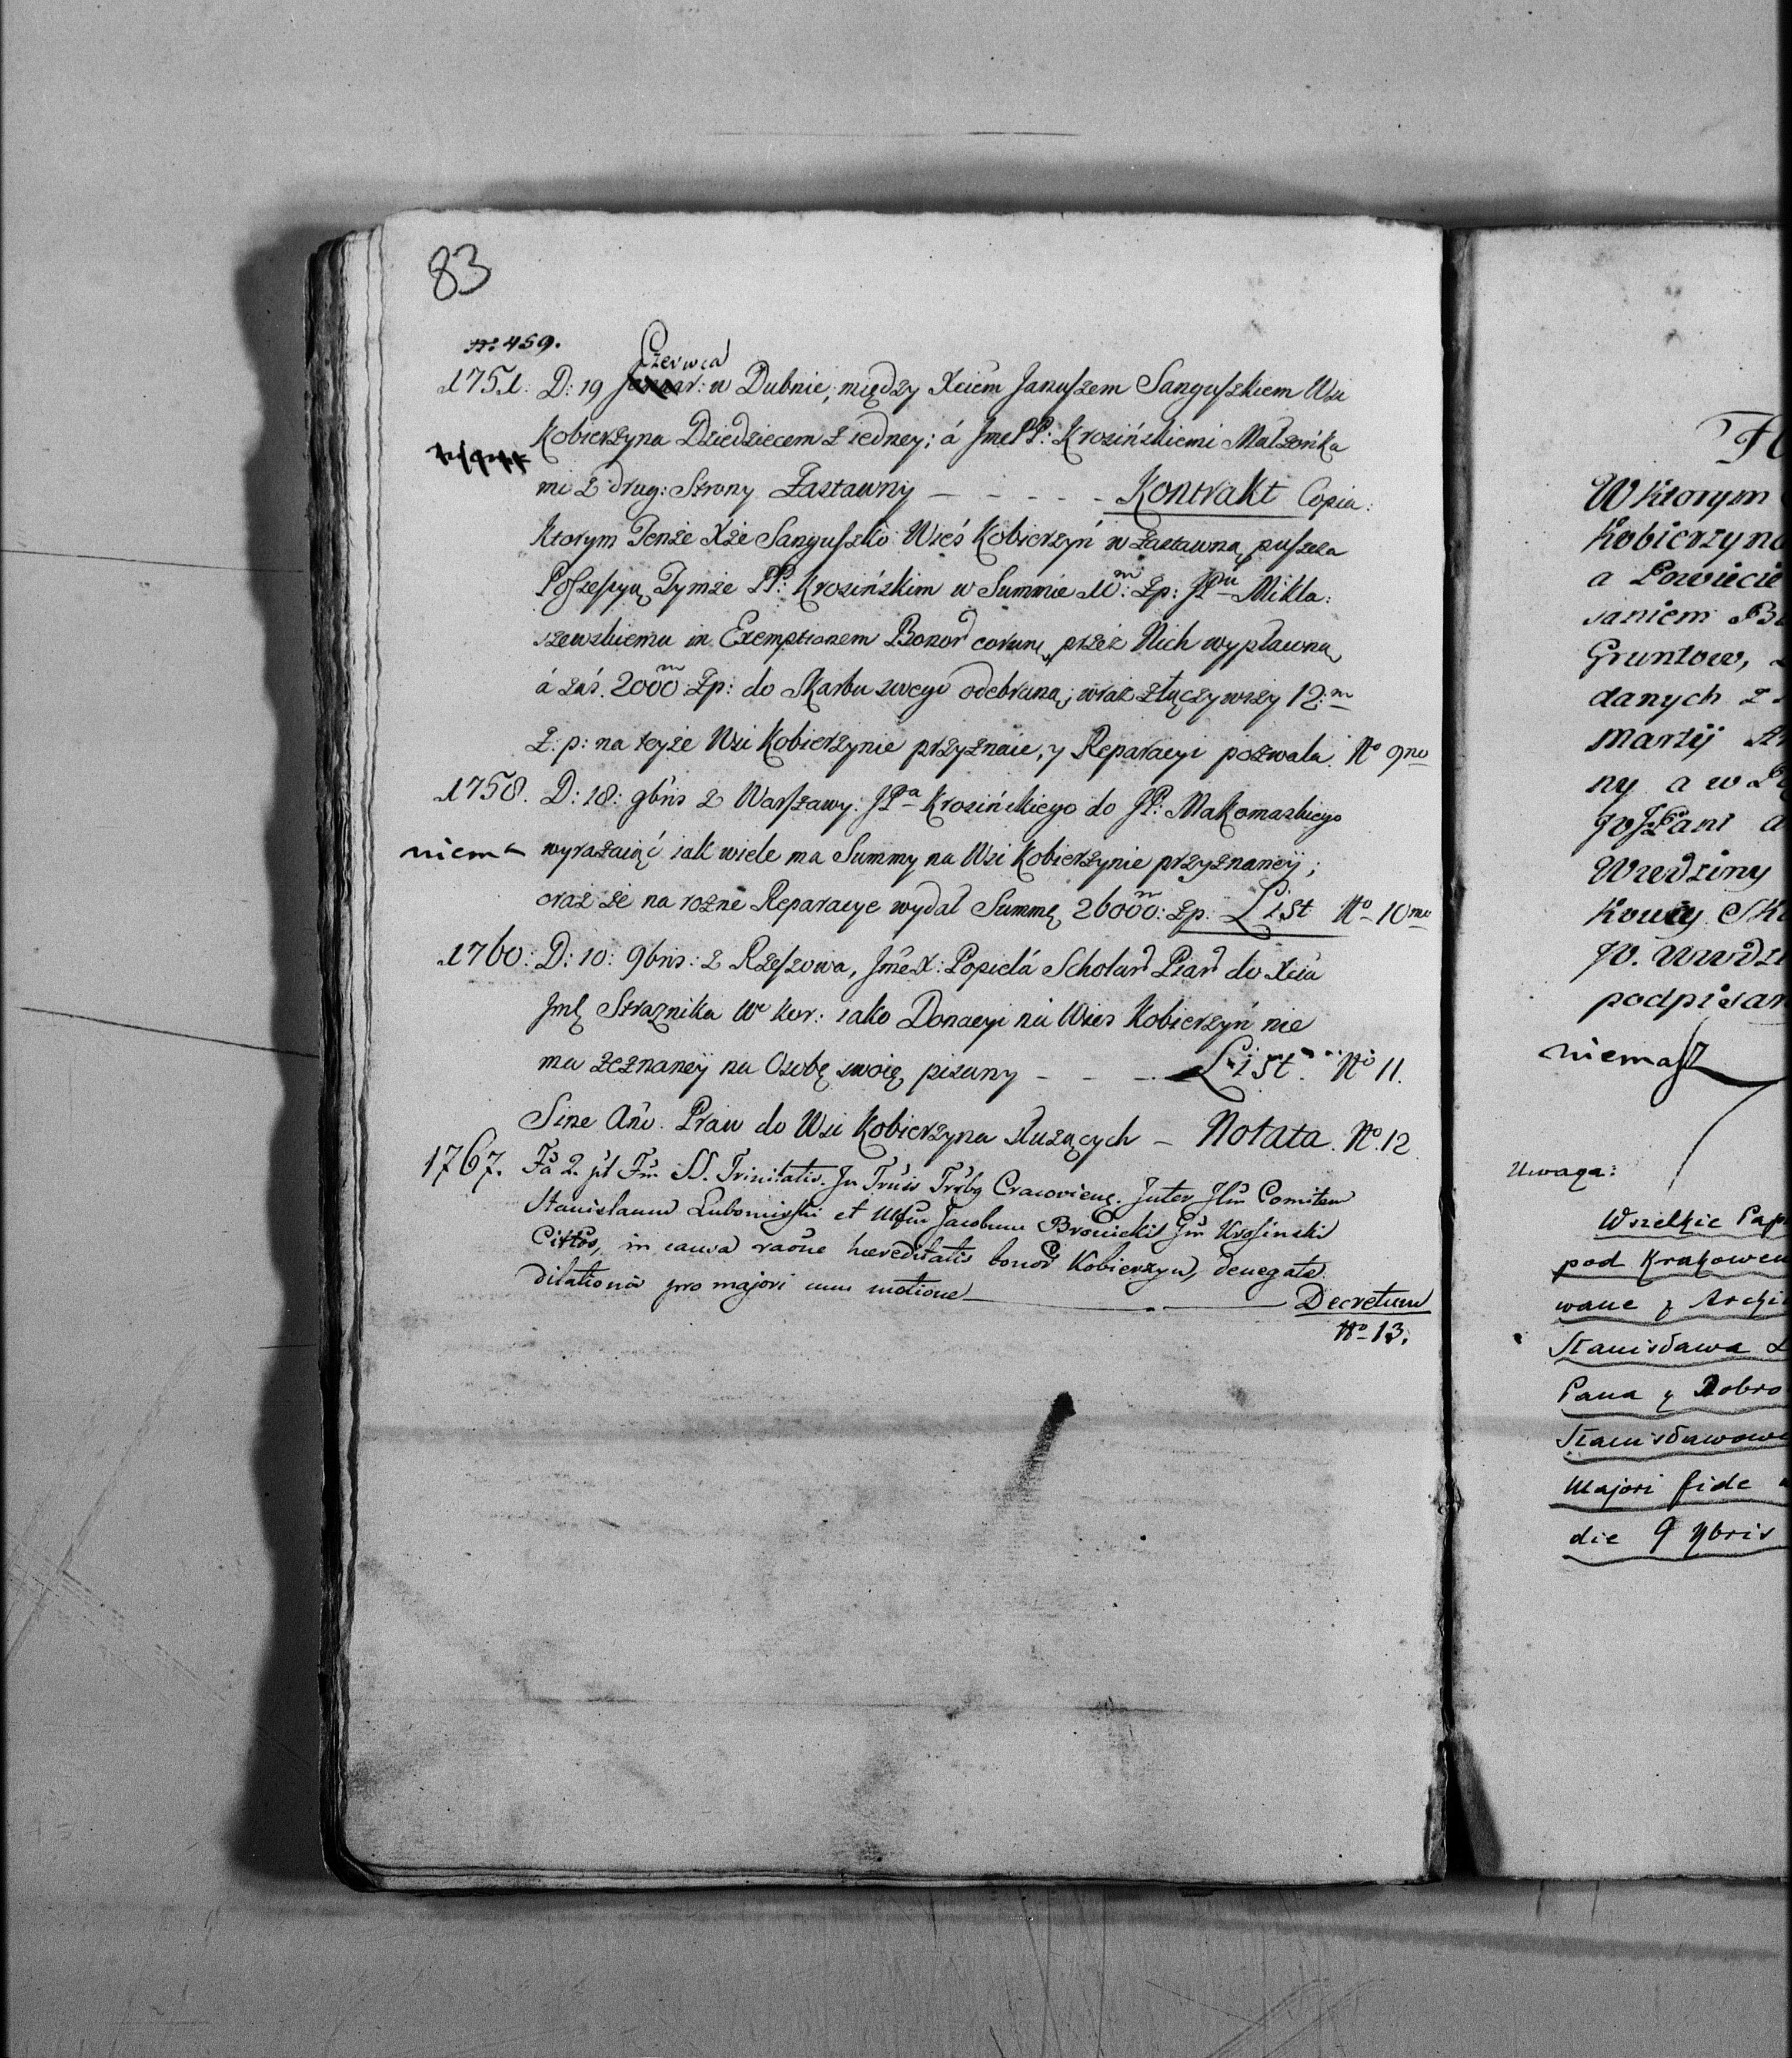 83
No 459.
Czerwca
1751. D: 19 w Dubnie, między Xciem Januszem Sanguszkiem Wsi
Kobierzyna Dziedzicem z iedney; á JmcPP: Krosińskiemi Małżonka
mi z drug: Strony Zastawny – – – – – Kontrakt Copia:
Ktorym Tenże Xże Sanguszko Wieś Kobierzyń w zastawną puszcza
Possessyą Tymże PP: Krosińskim w Summie Zp: JPnu Mikla:
szewskiemu in Exemptionem Bonor eorum, przez Nich wypławną
á zaś 2000 Zp: do Skarbu swego odebraną; wraz złączywszy 12:m
Z: p: na teyże Wsi Kobierzynie przyznaie, y Reparacyi pozwala. No 9no
1758. D: 18: 9bris z Warszawy. JPa Krosińskiego do JP: Makomaskiego
niema wyrażaiąc iak wiele ma Summy na Wsi Kobierzynie przyznaneÿ;
oraz że na rożne Reparacye wydał Summę 26000: Zp. List No 10mo
1760: D: 10: 9bris: z Rzeszowa, JmcX: Popielá Scholar Piar do Xcia
Jmć Straznika W Kor: iako Donacyi na Wies Kobierzyń nie
ma zeznaneÿ na Osobę swoię pisany – – – List. No 11.
Sine Año. Praw do Wsi Kobierzyna służących – Notata. No 12.
1767. Fa 2. pt Fm SS. Trinitatis. In Cracovieñ. Inter Illm Comitem
Stanislaum Lubomirski et Jacobum Bronicki Krosinski
in causa raõne hæreditatis bonor Kobierzyn, denegata
dilationa pro majori cum motione – Decretum
No 13.
W ktorym
Kobierzyn
a Powiecie
saniem
Gruntow,
danych z
Marzij
ny a w
JoJPani
Wwdziny
podpisan
niemasz
Uwaga:
Wszelkie Pap
pod Krakowem
wane z Archi
Stanisława
Pana y Dobro
Stanisławow
Majori fide
die 9 Xbris